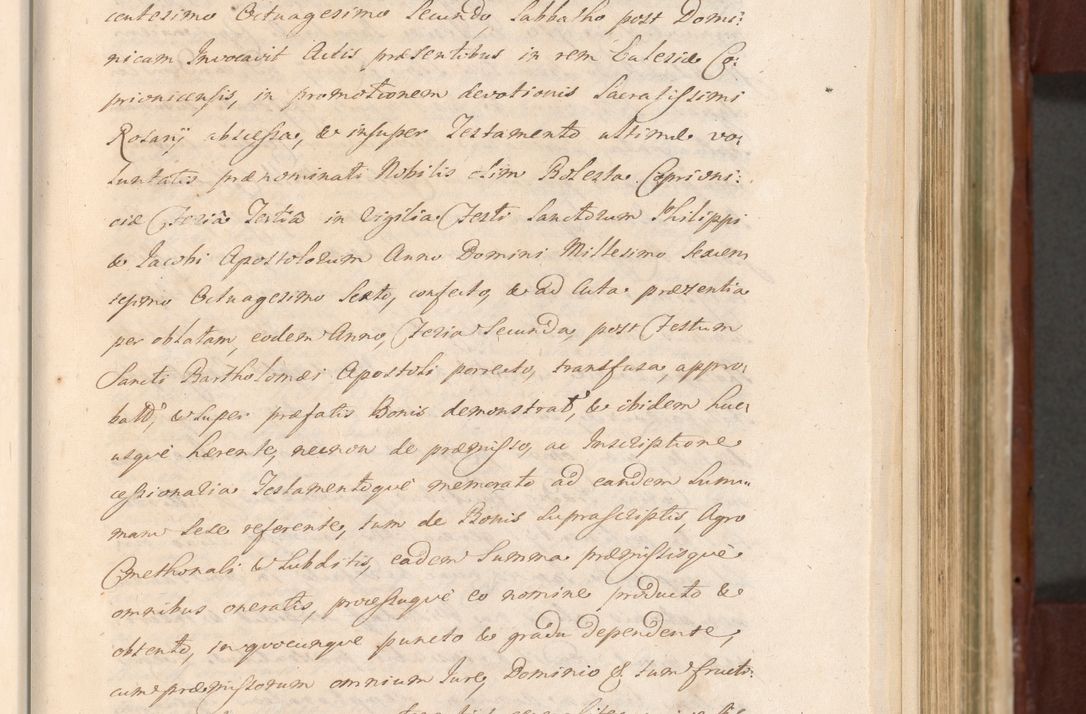 centesimo Octuagesimo Secundo Sabbatho post Domi:
nicam Invocavit Actis præsentibus in rem Eclesiæ Co:
prionicensis, in promotionem devotionis Sacratissimi
Rosarij abscessa, & insuper Testamento ultimæ vo,
luntatis prænominati Nobilis olim Bolesta Caprioni:
ciæ Feria Tertia in Vigilia Festi Sanctorum Philippi
& Iacobi Apostolorum Anno Domini Millesimo Sexcen,
tesimo Octuagesimo Sexto, confecto, & ad Acta præsentia
per oblatam, eodem Anno, Feria Secunda, post Festum
Sancti Bartholomæi Apostoli porrecto, transfusa, appro,
& super præfatis Bonis demonstrat, & ibidem huc,
usqué hærente, necnon de præmisso, ac Inscriptione
cessionalia Testamentoqué memorato ad eandem Sum,,
mam sese referente, tum de Bonis Suprascriptis, Agro
Cmethonali & Subditis, eadem Summa præmissisqué
omnibus oneratis, processuqué eo nomine producto &
obtento, in quocunqué puncto & gradu dependente,
cum præmissorum omnium Iure, Dominio & sum fructi: